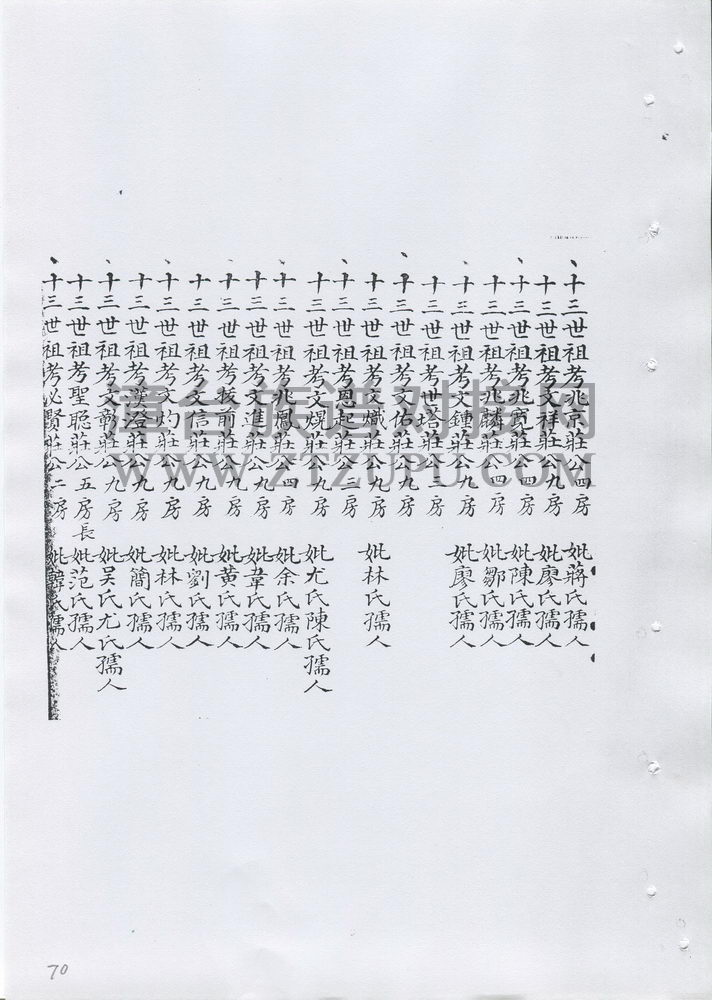 十三世祖考兆京莊公四房 妣蔣氏孺人
十三世祖考文祥莊公九房 妣廖氏孺人
十三世祖考兆寬莊公四房 妣陳氏孺人
十三世祖考兆麟莊公四房 妣鄒氏孺人
十三世祖考文鍾莊公九房 妣廖氏孺人
十三世祖考世塔莊公三房
十三世祖考文佑莊公九房
十三世祖考文熾莊公九房 妣林氏孺人
十三世祖考恩起莊公二房
十三世祖考文焜莊公九房 妣尤氏陳氏孺人
十三世祖考兆鳳莊公四房 妣余氏孺人
十三世祖考文進莊公九房 妣韋氏孺人
十三世祖考振前莊公九房 妣黄氏孺人
十三世祖考文信莊公九房 妣劉氏孺人
十三世祖考文灼莊公九房 妣林氏孺人
十三世祖考漢澄莊公九房 妣簡氏孺人
十三世祖考文彰莊公九房 妣吴氏尤氏孺人
十三世祖考聖聪莊公五房長 妣范氏孺人
十三世祖考必賢莊公二房 妣韓氏孺人
清台族谱对接网
WWW.ZTZUPU.COM
70